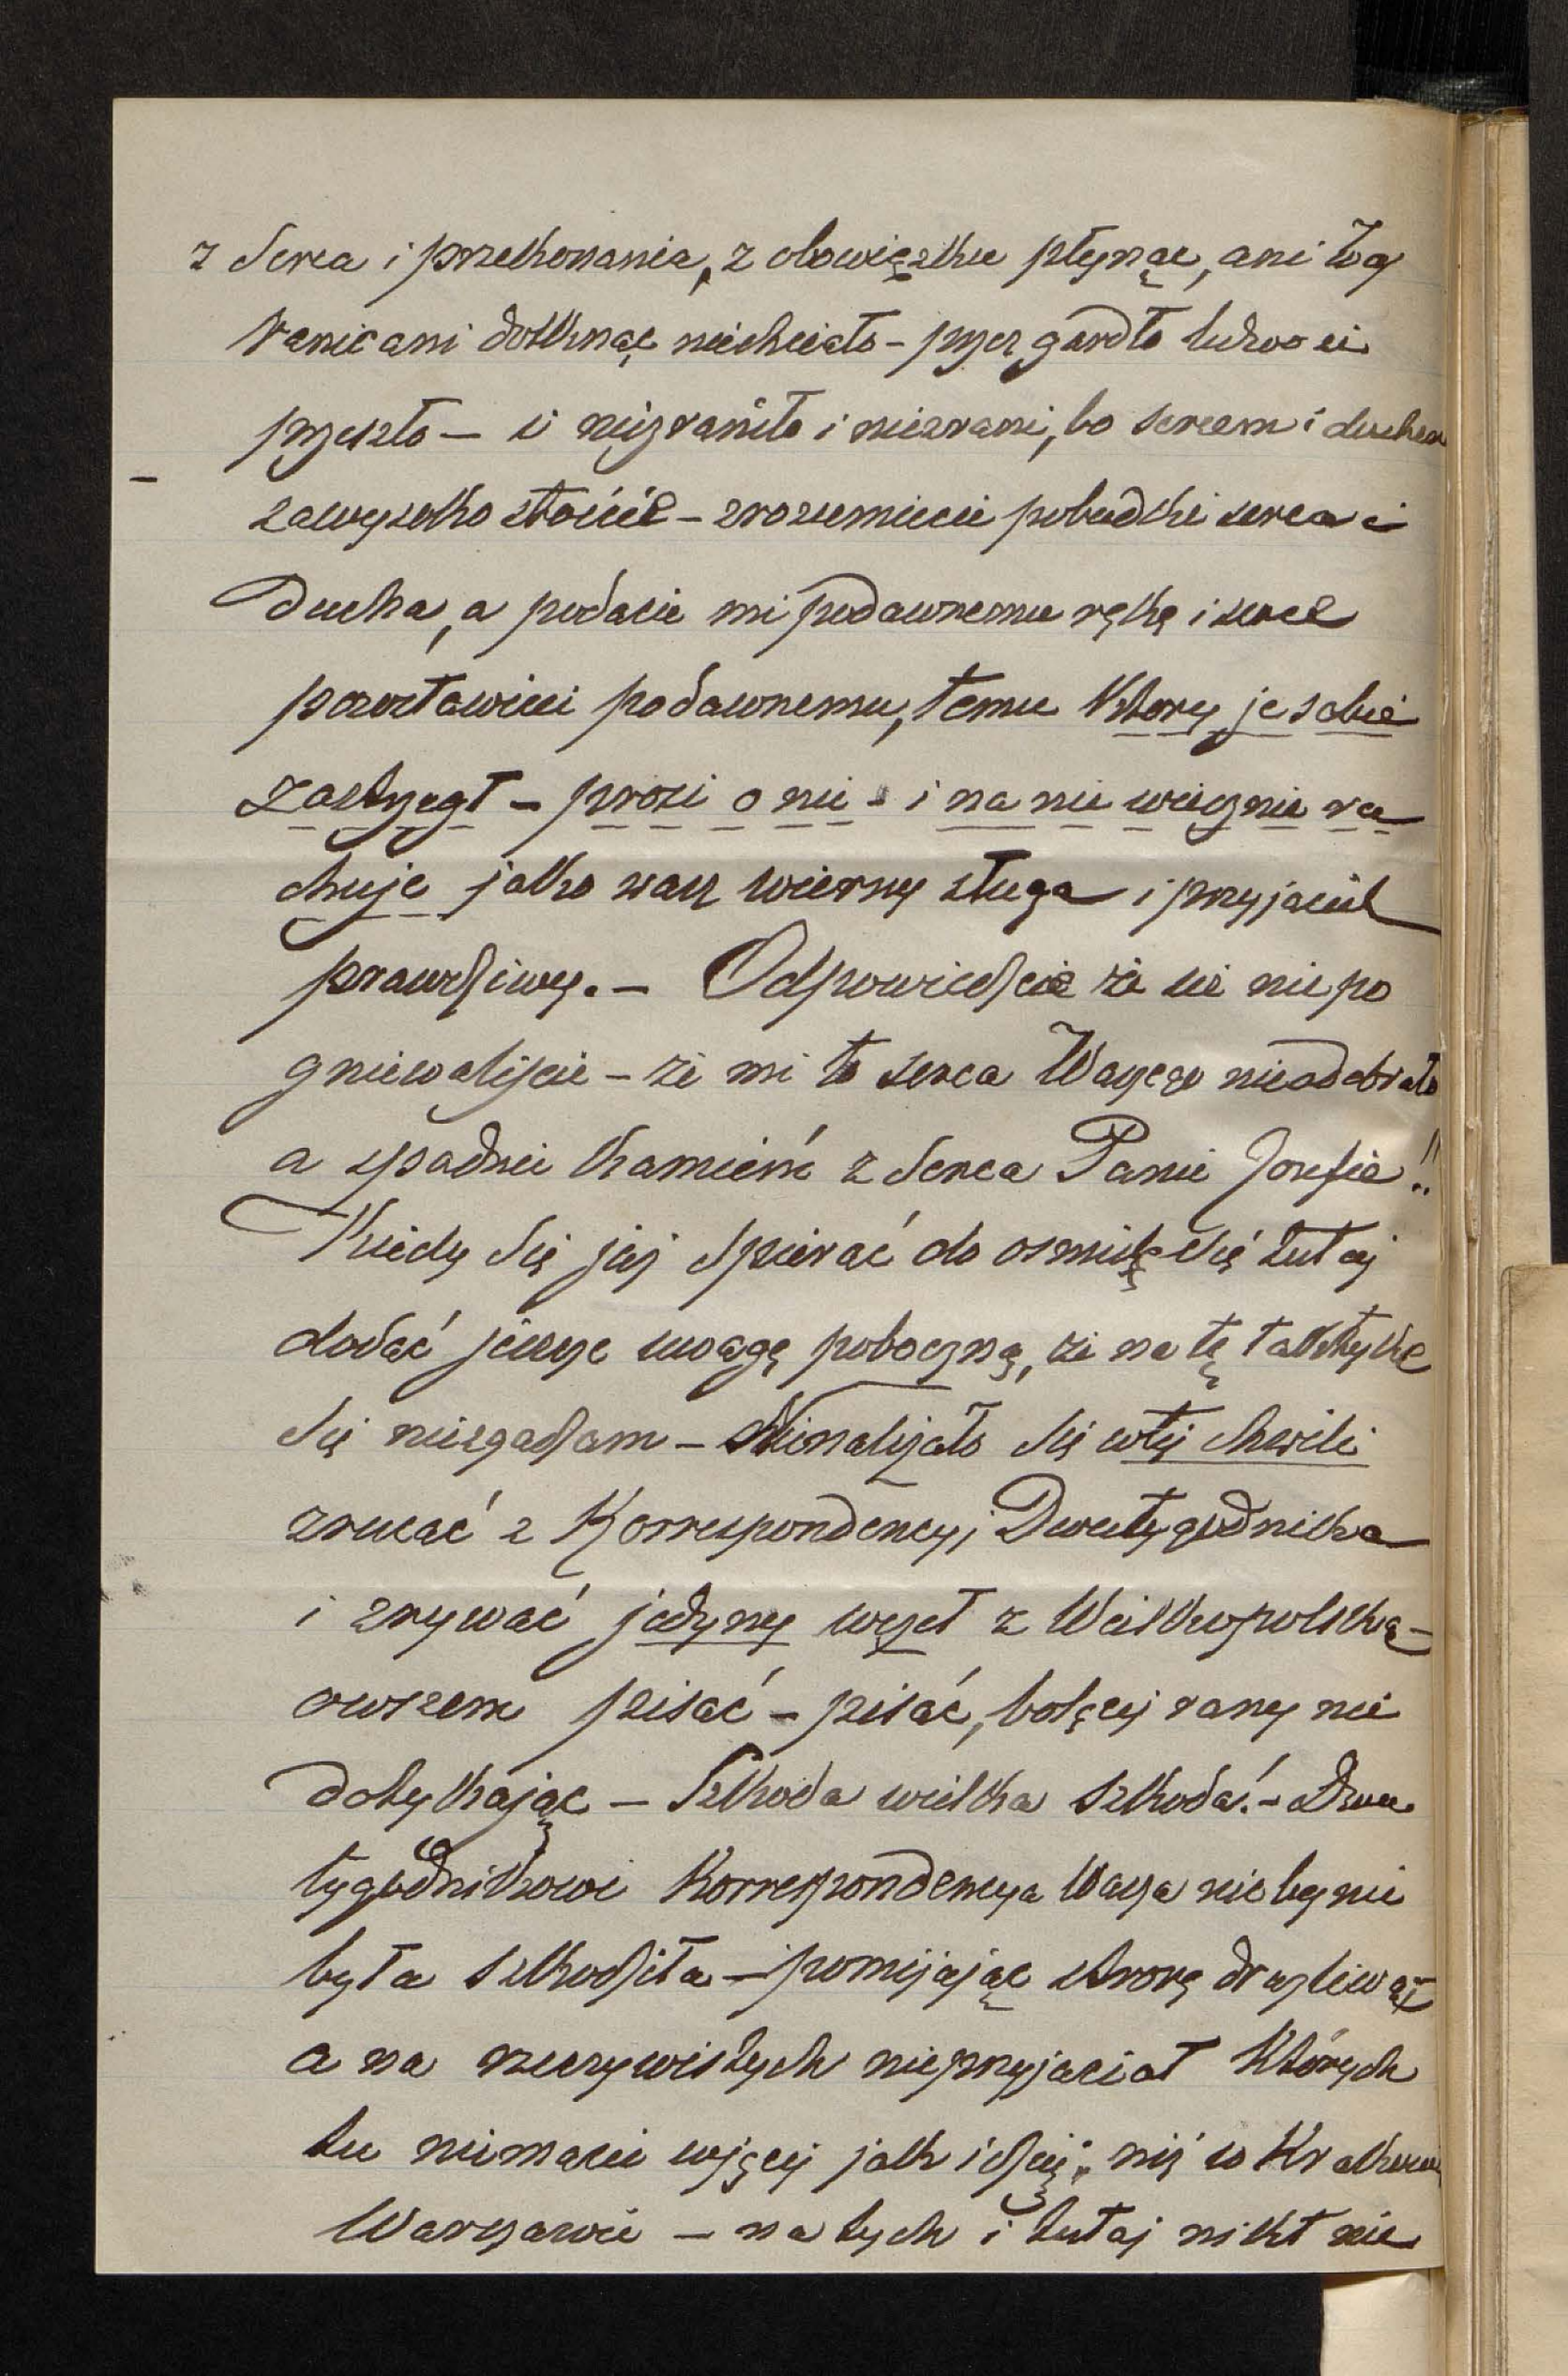 z Serca i przekonania, z obowiązku płynąc, ani Was
ranić ani dotknąć niechciało – przez gardło ludzoci
przeszło – i niezraniło i niezrani, bo sercem i duchem
zawysoko stoicie – zrozumiecie pobudki serca i
Ducha, a podacie mi podawnemu rękę i serce
pozostawicie podawnemu, temu który je sobie
zastrzegł – prosi o nie – i na nie wiecznie ra
chuje jako wasz wierny sługa i przyjaciel
prawdziwy. – Odpowiedzcie że się nie po
gniewaliście – że mi to serca Waszego nieodebrało
a spadnie kamień z Serca Panie Józefie!!
Kiedy Się jej Spierać do osmielę Się tutaj
dodać jeszcze uwagę poboczną, że na tę taktykę
Się niezgadzam – Nienależało Się wtej chwili
zrucać z Korrespondencyi Dwutygodnika
i zrywać jedyny węzeł z Wielkopolską –
owszem pisać – pisać, bolącej rany nie
dotykając – Szkoda wielka szkoda! – Dwu
tygodnikowi Korrespondencya Wasza nie by nie
była szkodziła – pomijając stronę drażliwą
a na rzeczywistych nieprzyjaciół których
tu niemacie więcej jak idzie, niż w Krakowie
Warszawie – na tych i tutaj nikt nie